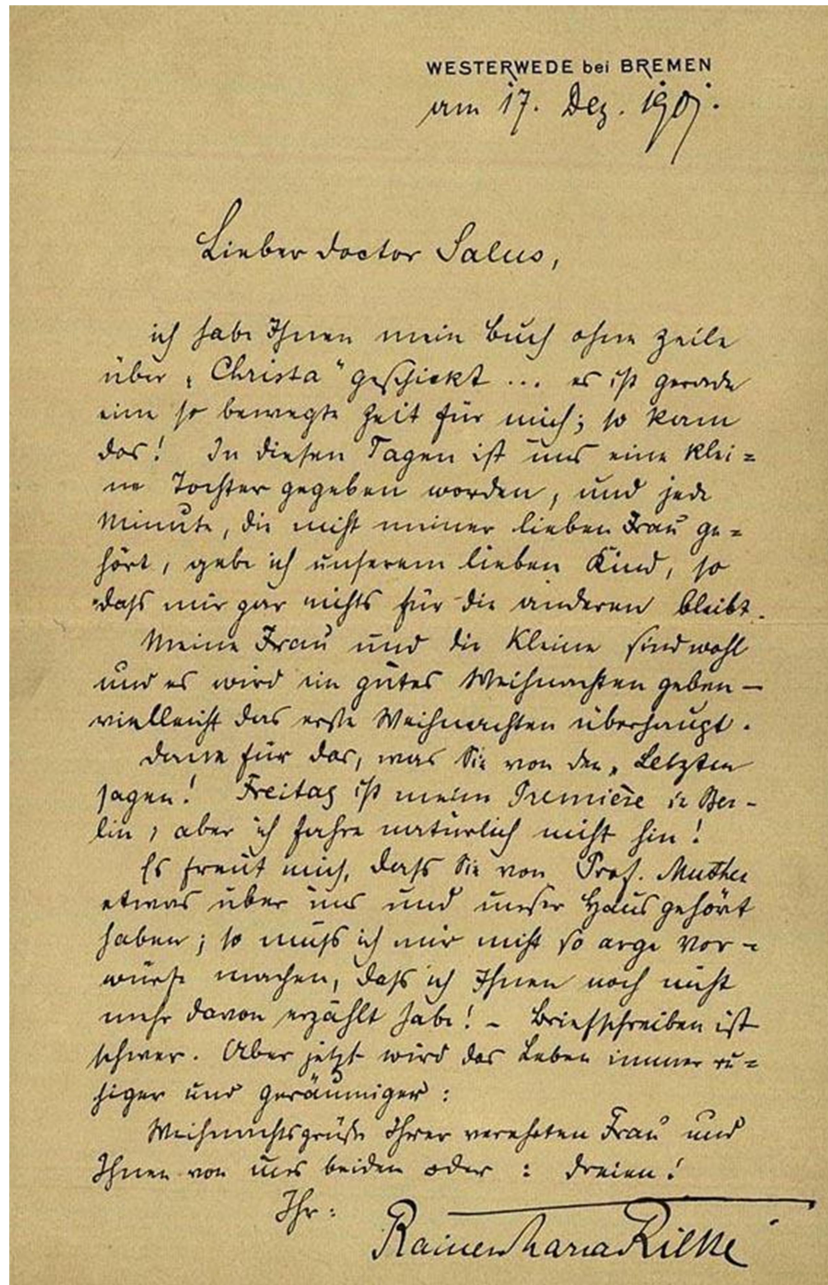 WESTERWEDE bei BREMEN
am 17. Dez. 1901.
Lieber Doctor Salus,
ich habe Ihnen mein Buch ohne Zeile
über „Christa" geschickt ... es ist gerade
eine so bewegte Zeit für mich; so kam
das! In diesen Tagen ist uns eine klei=
ne Tochter gegeben worden, und jede
Minute, die nicht meiner lieben Frau ge=
hört, gebe ich unserem lieben Kind, so
daß mir gar nichts für die anderen bleibt.
Meine Frau und die Kleine sind wohl
und es wird ein gutes Weihnachten geben –
vielleicht das erste Weihnachten überhaupt.
Dank für das, was Sie von den „Letzten
sagen! Freitag ist meine Première in Ber-
lin, aber ich fahre natürlich nicht hin!
Es freut mich, daß Sie von Prof. Muther
etwas über uns und unser Haus gehört
haben; so muß ich mir nicht so arge Vor-
würfe machen, daß ich Ihnen noch nicht
mehr davon erzählt habe! – Briefschreiben ist
schwer. Aber jetzt wird das Leben immer ru=
higer und geräumiger:
Weihnachtsgrüße Ihrer verehrten Frau und
Ihnen von uns beiden oder: dreien!
Ihr:
Rainer Maria Rilke